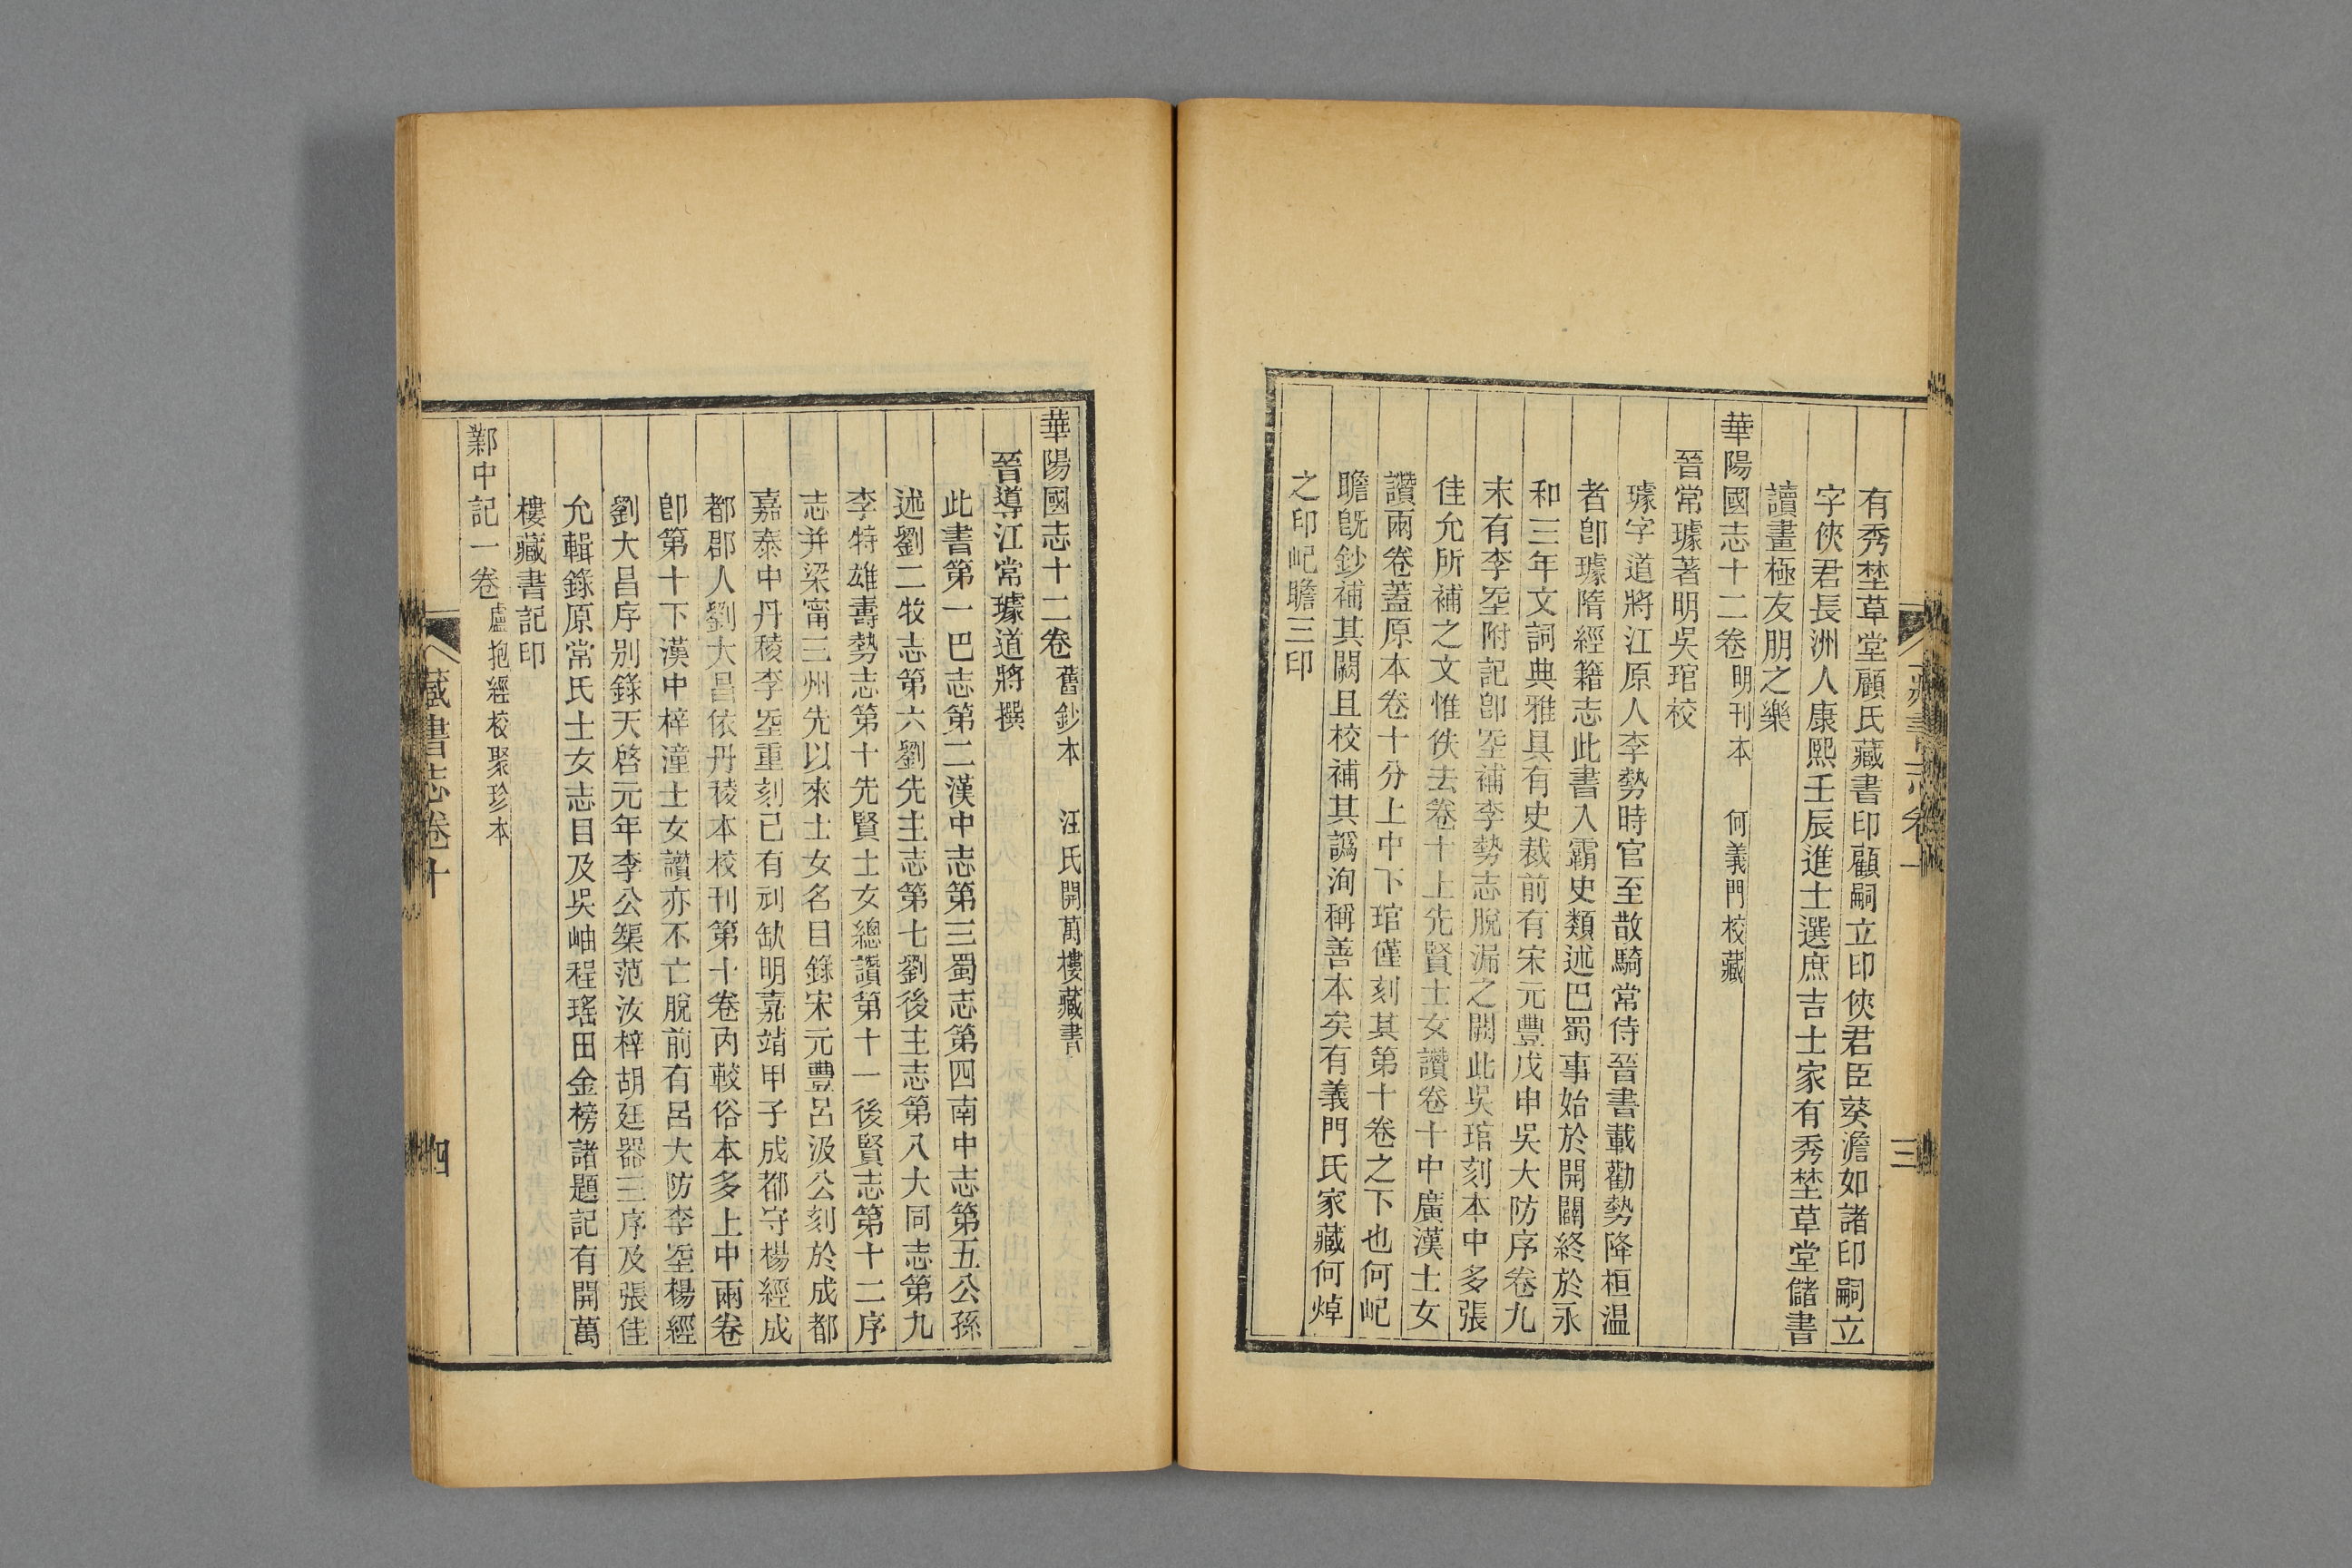 有秀埜草堂顧氏藏書印顧嗣立印俠君臣葵澹如諸印嗣立
字俠君長洲人康熙壬辰進士選庶吉士家有秀埜草堂儲書
讀畫極友朋之樂
華陽國志十二卷 明刊本 何義門校藏
晉常璩著明吳琯校
璩字道將江原人李勢時官至散騎常侍晉書載勸勢降桓温
者卽璩隋經籍志此書入霸史類述巴蜀事始於開闢終於永
和三年文詞典雅具有史裁前有宋元豐戊申吳大防序卷九
末有李㙷附記卽㙷補李勢志脫漏之闕此吳琯刻本中多張
佳允所補之文惟佚去卷十上先賢士女讚卷十中廣漢士女
讚兩卷蓋原本卷十分上中下琯僅刻其第十卷之下也何屺
瞻旣鈔補其闕且校補其譌洵稱善本矣有義門氏家藏何焯
之印屺瞻三印
三
華陽國志十二卷 舊鈔本 汪氏開萬樓藏書
晉導江常璩道將撰
此書第一巴志第二漢中志第三蜀志第四南中志第五公孫
述劉二牧志第六劉先主志第七劉後主志第八大同志第九
李特雄壽勢志第十先賢士女總讚第十一後賢志第十二序
志并梁甯三州先以來士女名目錄宋元豐呂汲公刻於成都
嘉泰中丹稜李㙷重刻已有刓缺明嘉靖甲子成都守楊經成
都郡人劉大昌依丹稜本校刊第十卷丙較俗本多上中兩卷
卽第十下漢中梓潼士女讚亦不亡脫前有呂大防李㙷楊經
劉大昌序别錄天啓元年李公榘范汝梓胡廷器三序及張佳
允輯錄原常氏士女志目及吳岫程瑤田金榜諸題記有開萬
樓藏書記印
鄴中記一卷 盧抱經校聚珍本
藏書志卷十
四